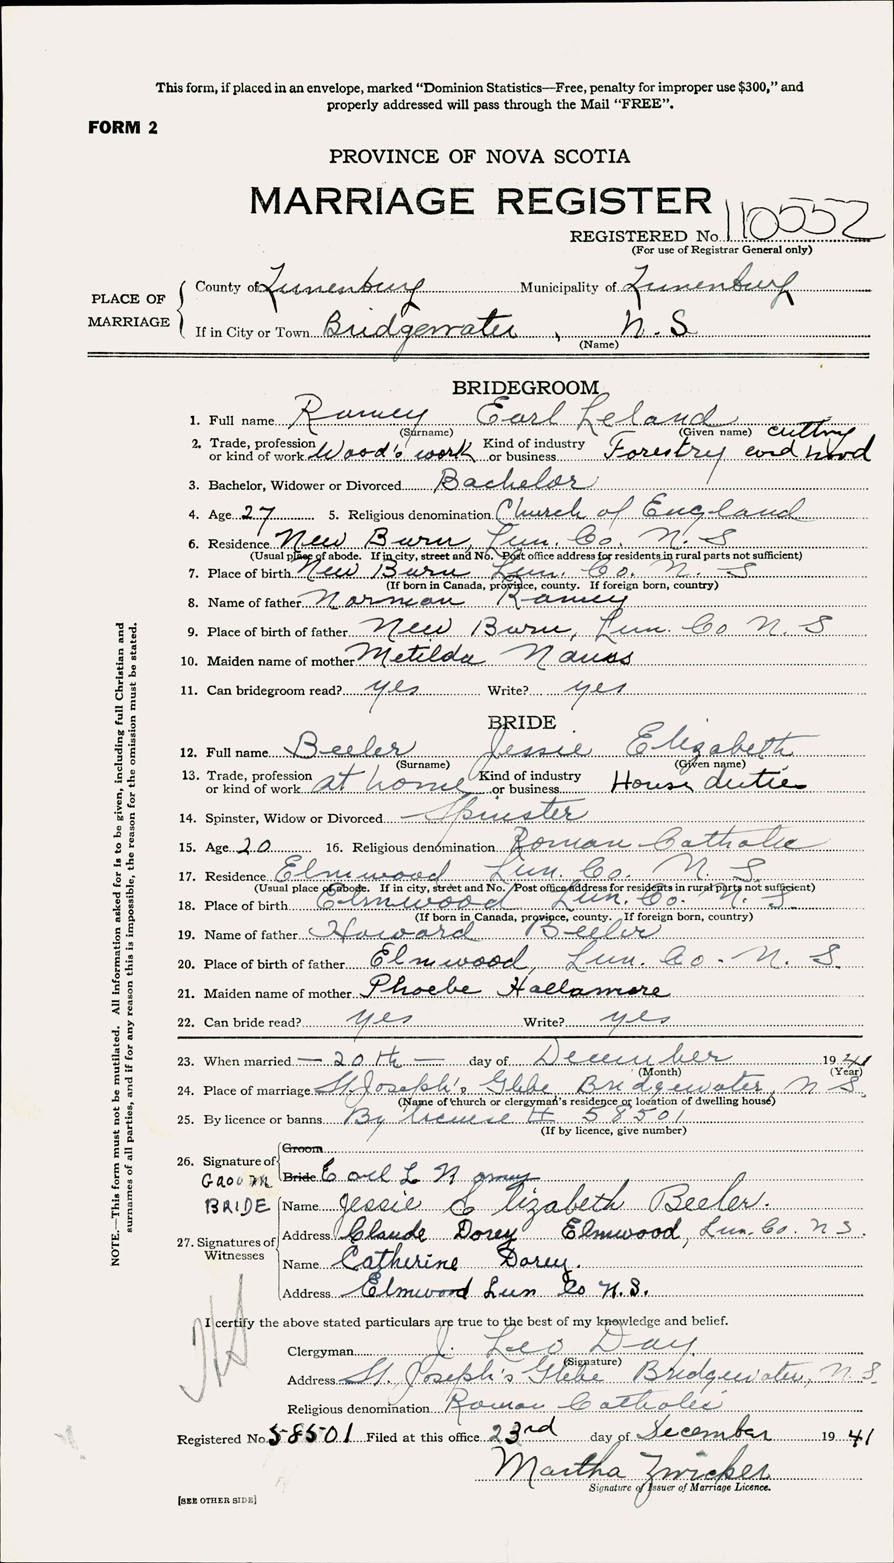 This form, if placed in an envelope, marked “Dominion Statistics—Free, penalty for improper use $300,” and
properly addressed will pass through the Mail “FREE”.
FORM 2
PROVINCE OF NOVA SCOTIA
MARRIAGE REGISTER
REGISTERED No. 110552
(For use of Registrar General only)
PLACE OF MARRIAGE
County of Lunenburg Municipality of Lunenburg
If in City or Town Bridgewater, N. S
(Name)
BRIDEGROOM
1. Full name Ramey Earl Leland
(Surname) (Given name)
2. Trade, profession or kind of work Wood's work Kind of industry or business Forestry cutting cord wood
3. Bachelor, Widower or Divorced Bachelor
4. Age 27 5. Religious denomination Church of England
6. Residence New Burn, Lun. Co. N. S
(Usual place of abode. If in city, street and No. Post office address for residents in rural parts not sufficient)
7. Place of birth New Burn Lun. Co. N. S
(If born in Canada, province, county. If foreign born, country)
8. Name of father Norman Ramey
9. Place of birth of father New Burn, Lun. Co N. S
10. Maiden name of mother Metilda Nauss
11. Can bridegroom read? yes Write? yes
BRIDE
12. Full name Beeler Jessie Elizabeth
(Surname) (Given name)
13. Trade, profession or kind of work at home Kind of industry or business House duties
14. Spinster, Widow or Divorced Spinster
15. Age 20 16. Religious denomination Roman Catholic
17. Residence Elmwood Lun. Co. N. S.
(Usual place of abode. If in city, street and No. Post office address for residents in rural parts not sufficient)
18. Place of birth Elmwood Lun. Co. N. S.
(If born in Canada, province, county. If foreign born, country)
19. Name of father Howard Beeler
20. Place of birth of father Elmwood, Lun. Co. N. S.
21. Maiden name of mother Phoebe Hallamore
22. Can bride read? yes Write? yes
23. When married — 20th — day of December 1941
(Month) (Year)
24. Place of marriage St. Joseph's Glebe Bridgewater, N S.
(Name of church or clergyman's residence or location of dwelling house)
25. By licence or banns By license # 58501
(If by licence, give number)
26. Signature of Groom
Bride Earl L Ramey
GROOM
BRIDE Name Jessie Elizabeth Beeler.
27. Signatures of Witnesses
Address Claude Dorey Elmwood, Lun. Co. N S.
Name Catherine Dorey.
Address Elmwood Lun Co N.S.
I certify the above stated particulars are true to the best of my knowledge and belief.
Clergyman J. Leo Day
(Signature)
Address St. Joseph's Glebe Bridgewater, N. S.
Religious denomination Roman Catholic
Registered No. 58501 Filed at this office 23rd day of December 1941
Martha Zwicker
Signature of Issuer of Marriage Licence.
[SEE OTHER SIDE]
NOTE.—This form must not be mutilated. All information asked for is to be given, including full Christian and
surnames of all parties, and if for any reason this is impossible, the reason for the omission must be stated.